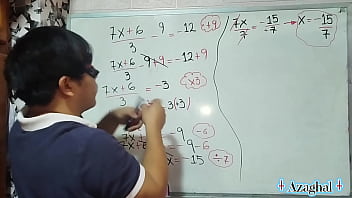 7x+6/3 - 9 = -12 (+9)
7x+6/3 - 9+9 = -12+9
7x+6/3 = -3 (x3)
-3(+3)
-9 (-6)
7x+6-6 = -9-6
x = -15 (÷7)
7x/7 = -15/÷7 → x = -15/7
⸸ Azaghal ⸸